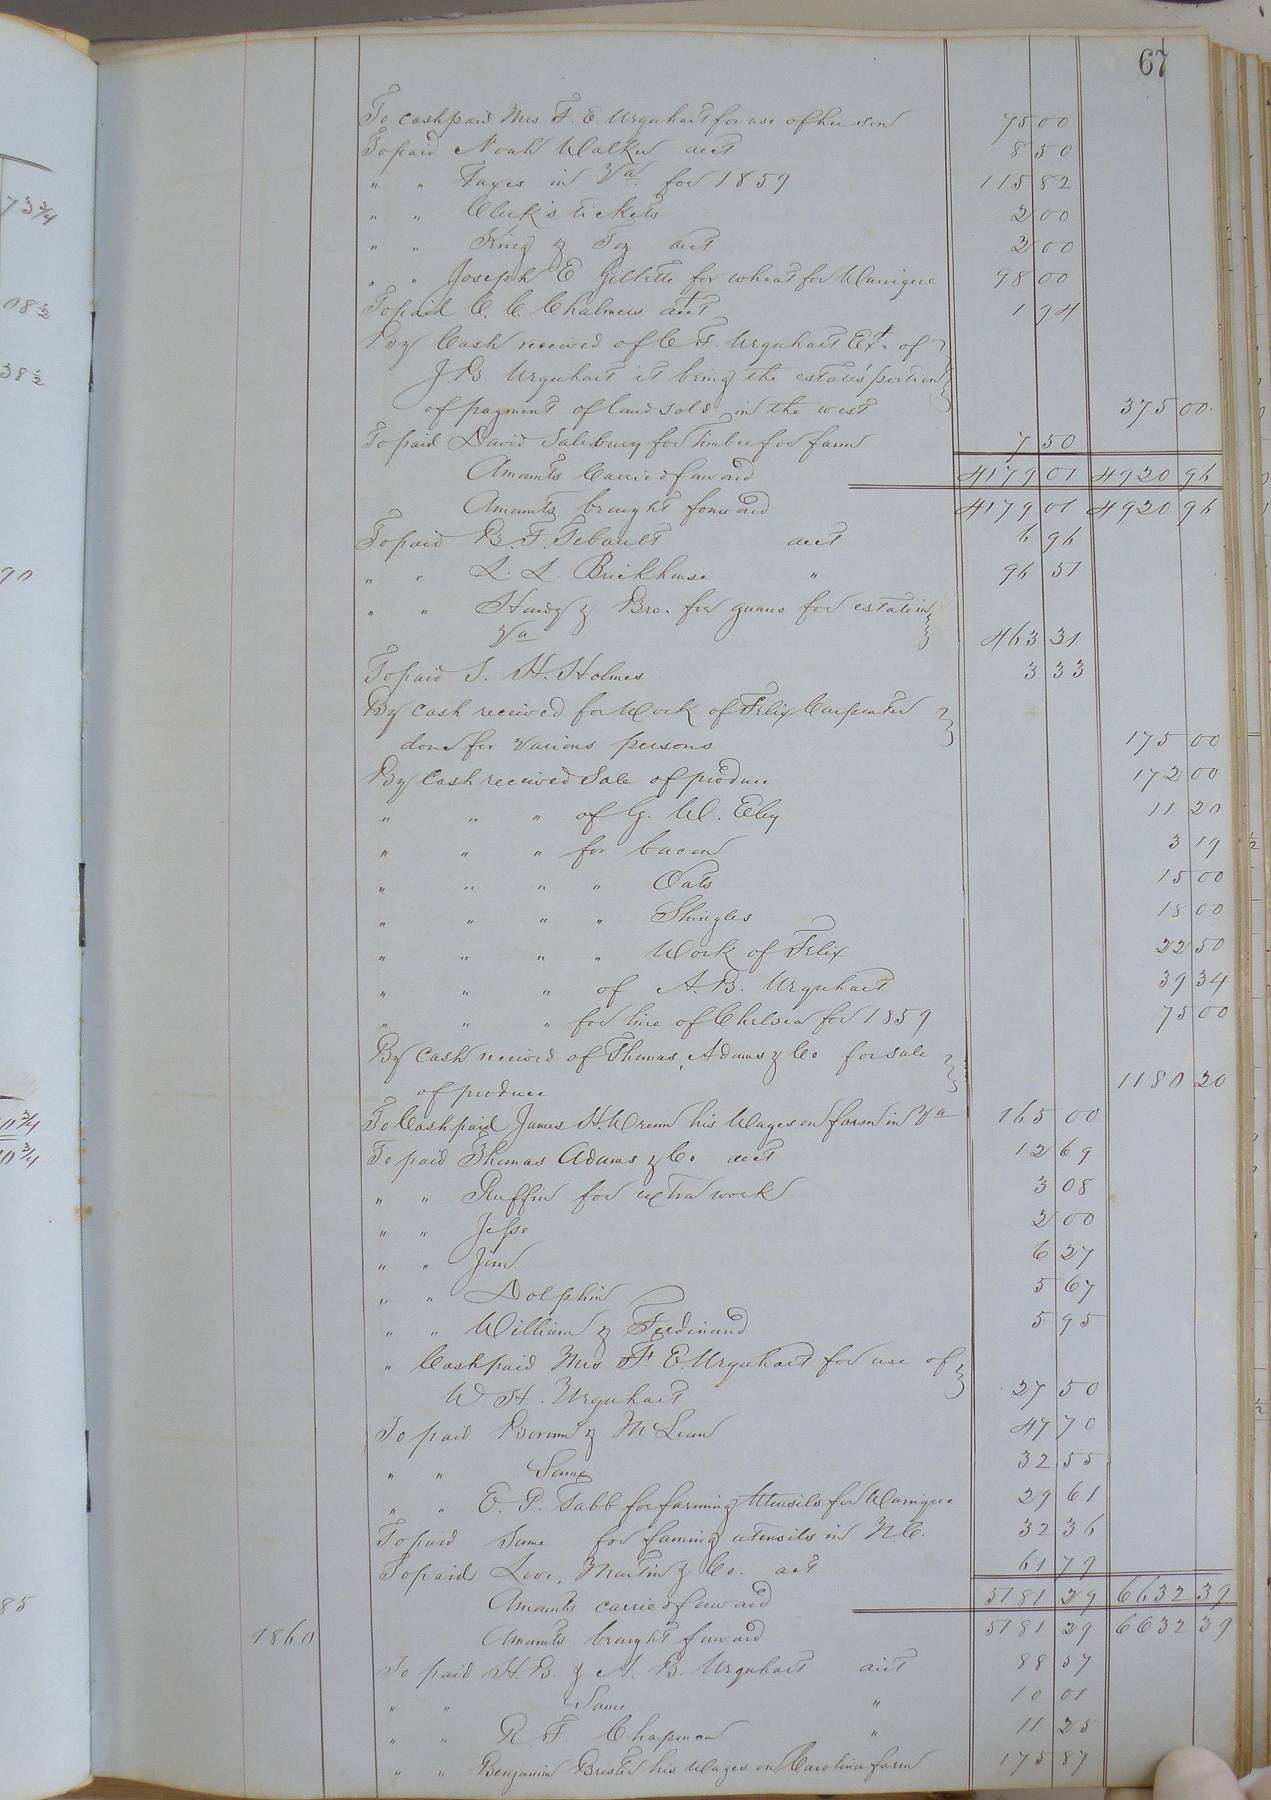 67
To cash paid Mrs F. E. Urquhart for use of her son 75 00
To paid Noah Walker acct 8 50
" " Taxes in Va for 1859 115 82
" " Clerk's tickets 2 00
" " King & Toy acct 2 00
" " Joseph E Gillette for wheat for Warrique 98 00
To paid C. C. Chalmers acct 1 94
By Cash received of C F. Urquhart Exr. of
J. B Urquhart it being the estates' portion
of payment of land sold in the west 375 00
To paid David Salsbury for timber for farm 7 50
Amounts Carried forward 4179 01 4920 96
Amounts brought forward 4179 01 4920 96
To paid B. F. Tebault acct 6 96
" " L. L. Brickhouse " 96 51
" " Hardy & Bro. for guano for estate in
Va 463 31
To paid S. H. Holmes 3 33
By cash received for Work of Felix Carpenter
done for various persons 175 00
By Cash received Sale of produce 172 00
" " " of G. W. Eley 11 20
" " " for bacon 3 19
" " " " Oats 15 00
" " " " Shingles 18 00
" " " " Work of Felix 22 50
" " " of A. B. Urquhart 39 34
" " " for hire of Chelsea for 1859 75 00
By Cash received of Thomas, Adams & Co for sale
of produce 1180 20
To Cash paid James H. Wrenn his Wages on farm in Va 165 00
To paid Thomas Adams & Co acct 12 69
" " Ruffin for extra work 3 08
" " Jesse 2 00
" " Jim 6 27
" " Dolphin 5 67
" " William & Ferdinand 5 95
" Cash paid Mrs F. E. Urquhart for use of
W. H. Urquhart 27 50
To paid Borum & McLean 47 70
" " Same 32 55
" " E. P. Tabb for farming Utensils for Warrique 29 61
To paid Same for faming utensils in N.C. 32 36
To paid Love, Martin & Co. act 61 79
Amounts carried forward 5181 29 6632 39
1860 Amounts brought forward 5181 29 6632 39
To paid H. B. & A. B. Urquhart acct 88 57
" " Same " 10 01
" " R. F. Chapman " 11 25
" " Benjamin Brister his Wages on Carolina farm 175 87
73 3/4
08 1/2
38 1/2
90
85